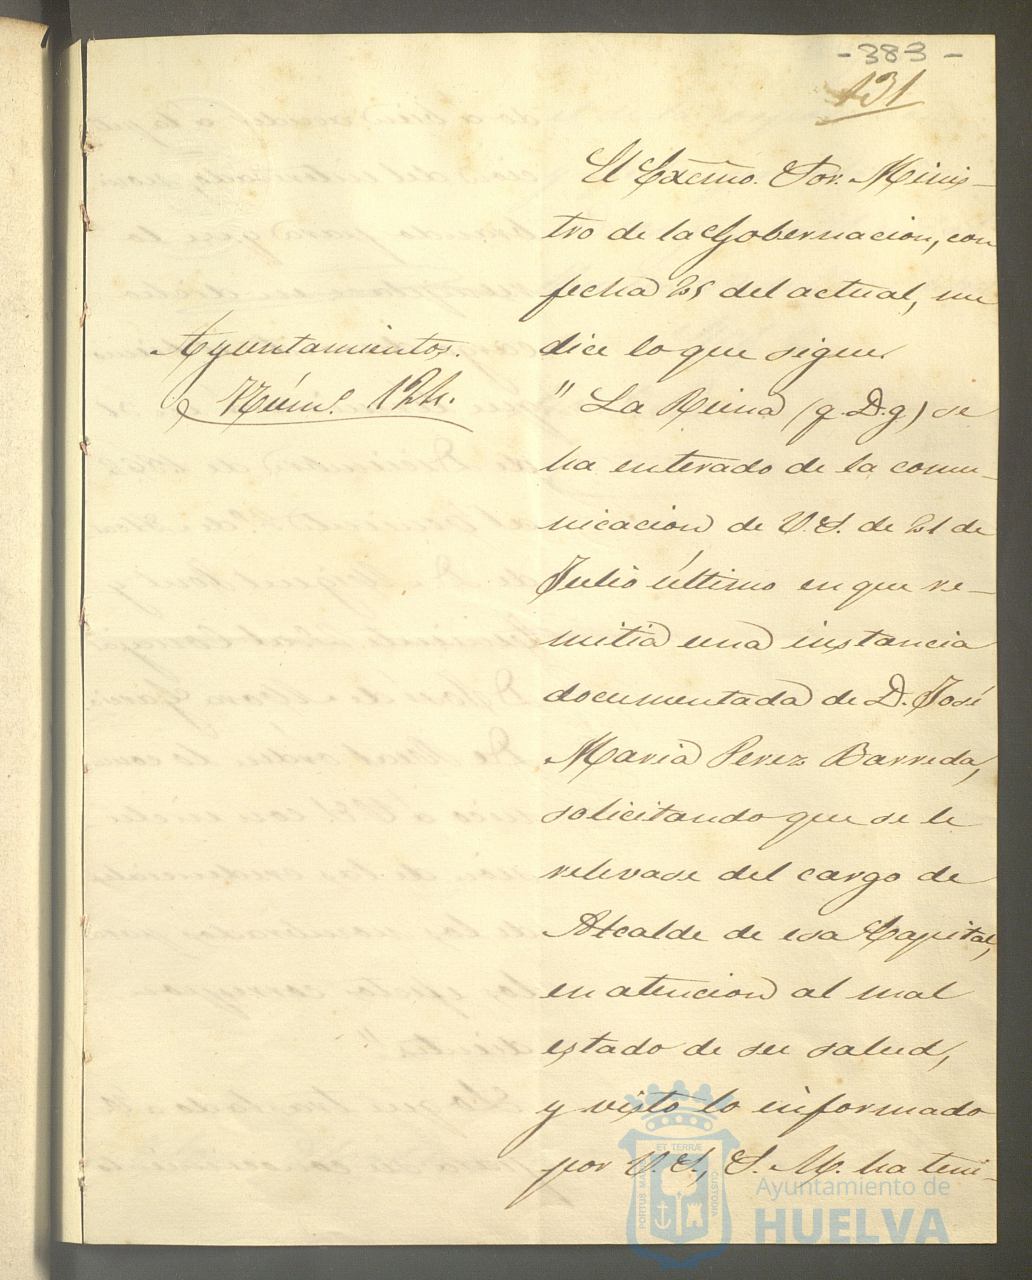 -383-
131
El Excmo. Sor. Minis-
tro de la Gobernacion, con
fecha 25 del actual, me
dice lo que sigue
Ayuntamientos.
Núm. 124.
" La Reina (q. D. g) se
ha enterado de la comu-
nicacion de V. S. de 21 de
Julio último en que re-
mitia una instancia
documentada de D. José
Maria Perez Barreda,
solicitando que se le
relevase del cargo de
Alcalde de esa Capital,
en atencion al mal
estado de su salud,
y visto lo informado
por V. S., S. M. ha teni-
ET TERRÆ
PORTUS MA
CUSTODIA
Ayuntamiento de
HUELVA